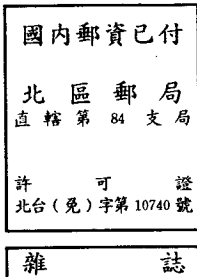 國內郵資已付
北區郵局
直轄第84支局
許可證
北台(免)字第10740號
雜誌